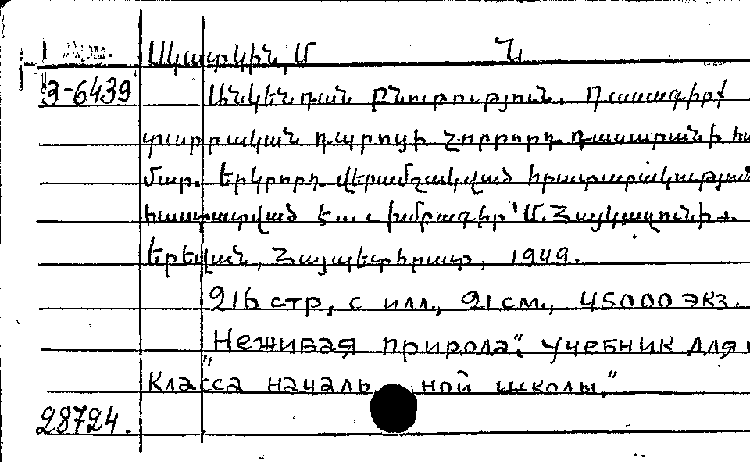 Սկատկին, Մ Ն
Э-6439 Անկենդան բնություն. Դասագիրք
տարրական դպրոցի չորրորդ դասարանի հա
մար. Երկրորդ վերամշակված հրատարակություն
հաստատված է... խմբագիր՝ Մ. Հայկազունի
Երևան, Հայպետհրատ, 1949.
216 стр, с илл., 21 см., 45000 экз.
"Неживая природа". Учебник для
класса началь ной школы."
28724.